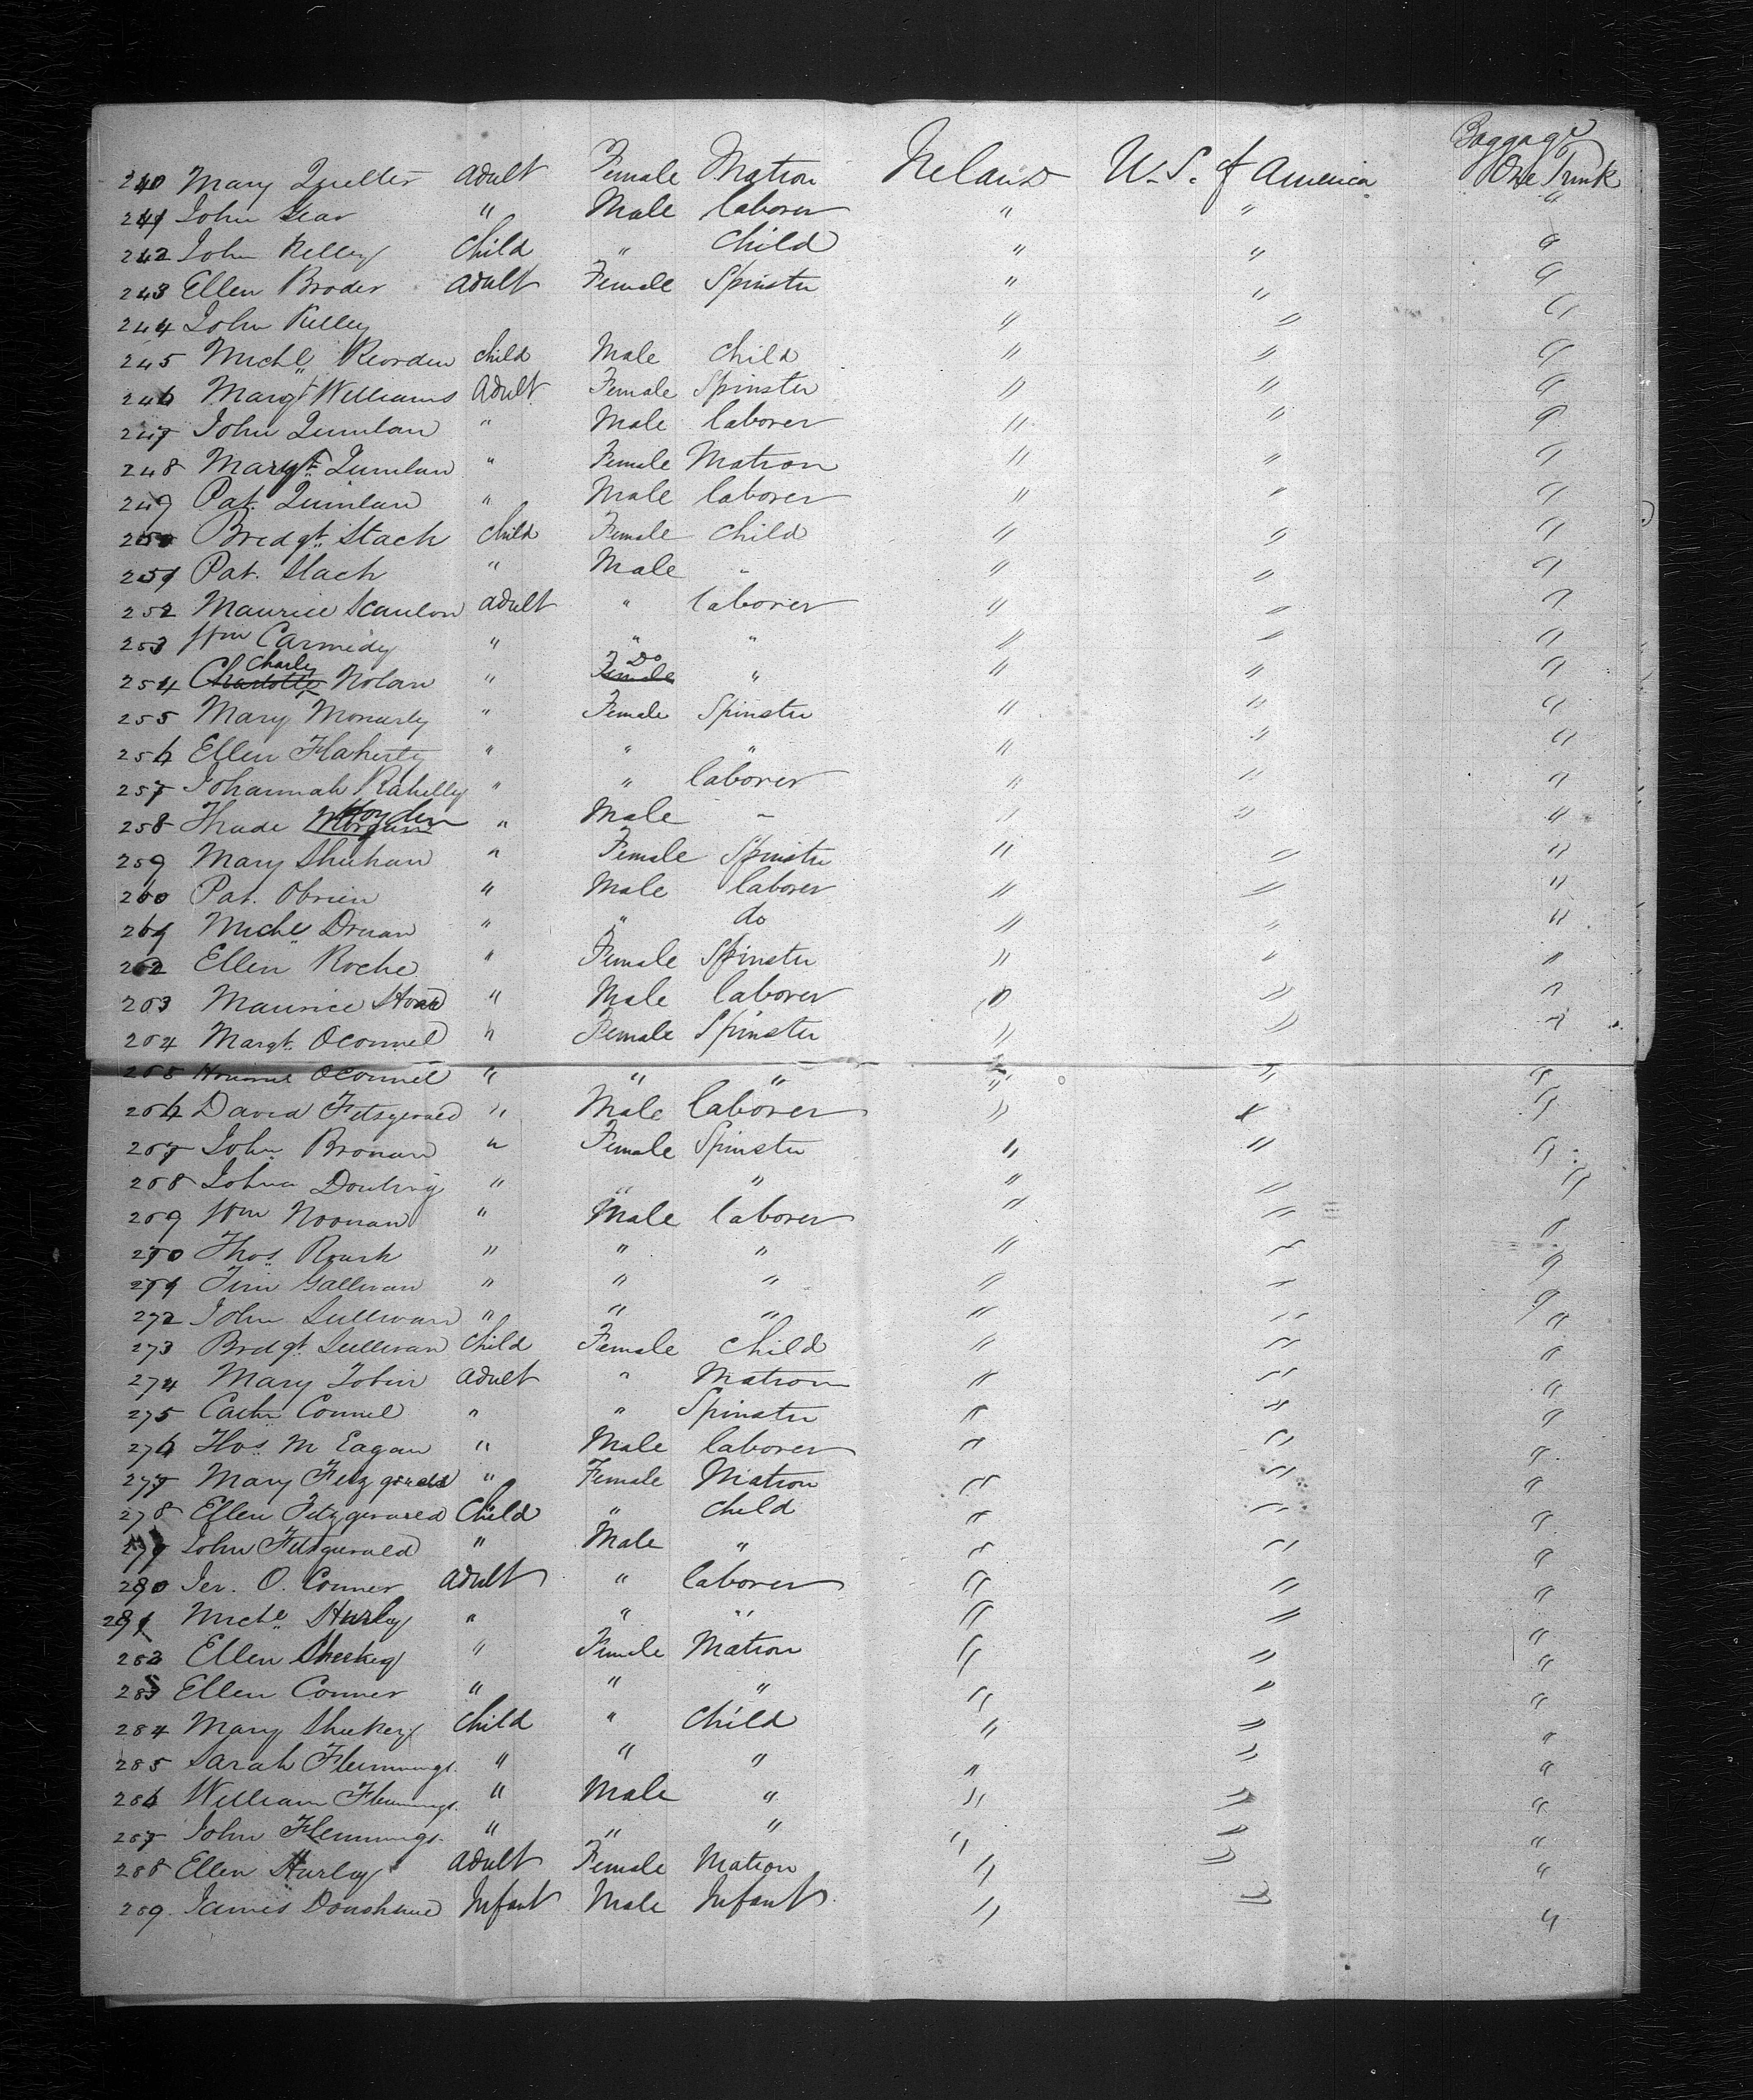 Baggage
240 Mary Quilter adult Female Matron Ireland U.S. of America One Trunk
241 John Gear " Male laborer " " "
242 John Kelley child " child " " "
243 Ellen Broder adult Female Spinster " " "
244 John Kelley " " "
245 Michl Reorden child Male child " " "
246 Margt Williams adult Female Spinster " " "
247 John Quinlan " Male laborer " " "
248 Margt Quinlan " Female Matron " " "
249 Pat. Quinlan " Male laborer " " "
250 Bredgt Stack child Female child " " "
251 Pat. Stack " Male " " " "
252 Maurice Scanlon adult " laborer " " "
253 Wm Carmidy " " " " " "
254 Charlotte Charley Nolan " Female Do " " " "
255 Mary Moriarty " Female Spinster " " "
256 Ellen Flaherty " " " " " "
257 Johannah Rahelly " " laborer " " "
258 Thade Hoyden " Male " " " "
259 Mary Shuhan " Female Spinster " " "
260 Pat. Obrien " Male laborer " " "
261 Michl Druan " " do " " "
262 Ellen Roche " Female Spinster " " "
263 Maurice " Male laborer " " "
264 Margt. Oconnel " Female Spinster " " "
265 Oconnel " " " " " "
266 David Fitsgerald " Male laborer " " "
267 John Bronan " Female Spinster " " "
268 Dowling " " " " " "
269 Wm Noonan " Male laborer " " "
270 Thos. Roark " " " " " "
271 Tim Gallivan " " " " " "
272 John Sullivan " " " " " "
273 Brdgt. Sullivan child Female child " " "
274 Mary Tobin adult " Matron " " "
275 Cathr Connel " " Spinster " " "
276 Thos. M Eagan " Male laborer " " "
277 Mary Fitzgerald " Female Matron " " "
278 Ellen Fitzgerald child " child " " "
279 John Fitsgerald " Male " " " "
280 Jer. O. Conner adult " laborer " " "
281 Michl Hurley " " " " " "
282 Ellen Sheekey " Female Matron " " "
283 Ellen Conner " " " " " "
284 Mary Sheekey child " child " " "
285 Sarah Flemmings. " " " " " "
286 William Flemmings. " Male " " " "
287 John Flemmings. " " " " " "
288 Ellen Hurley adult Female Matron " " "
289. James Donohue Infant Male Infant " " "